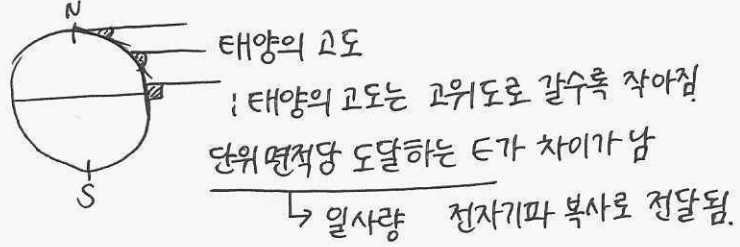 N
태양의 고도
: 태양의 고도는 고위도로 갈수록 작아짐
단위 면적당 도달하는 E가 차이가 남
S
↳ 일사량 전자기파 복사로 전달됨.